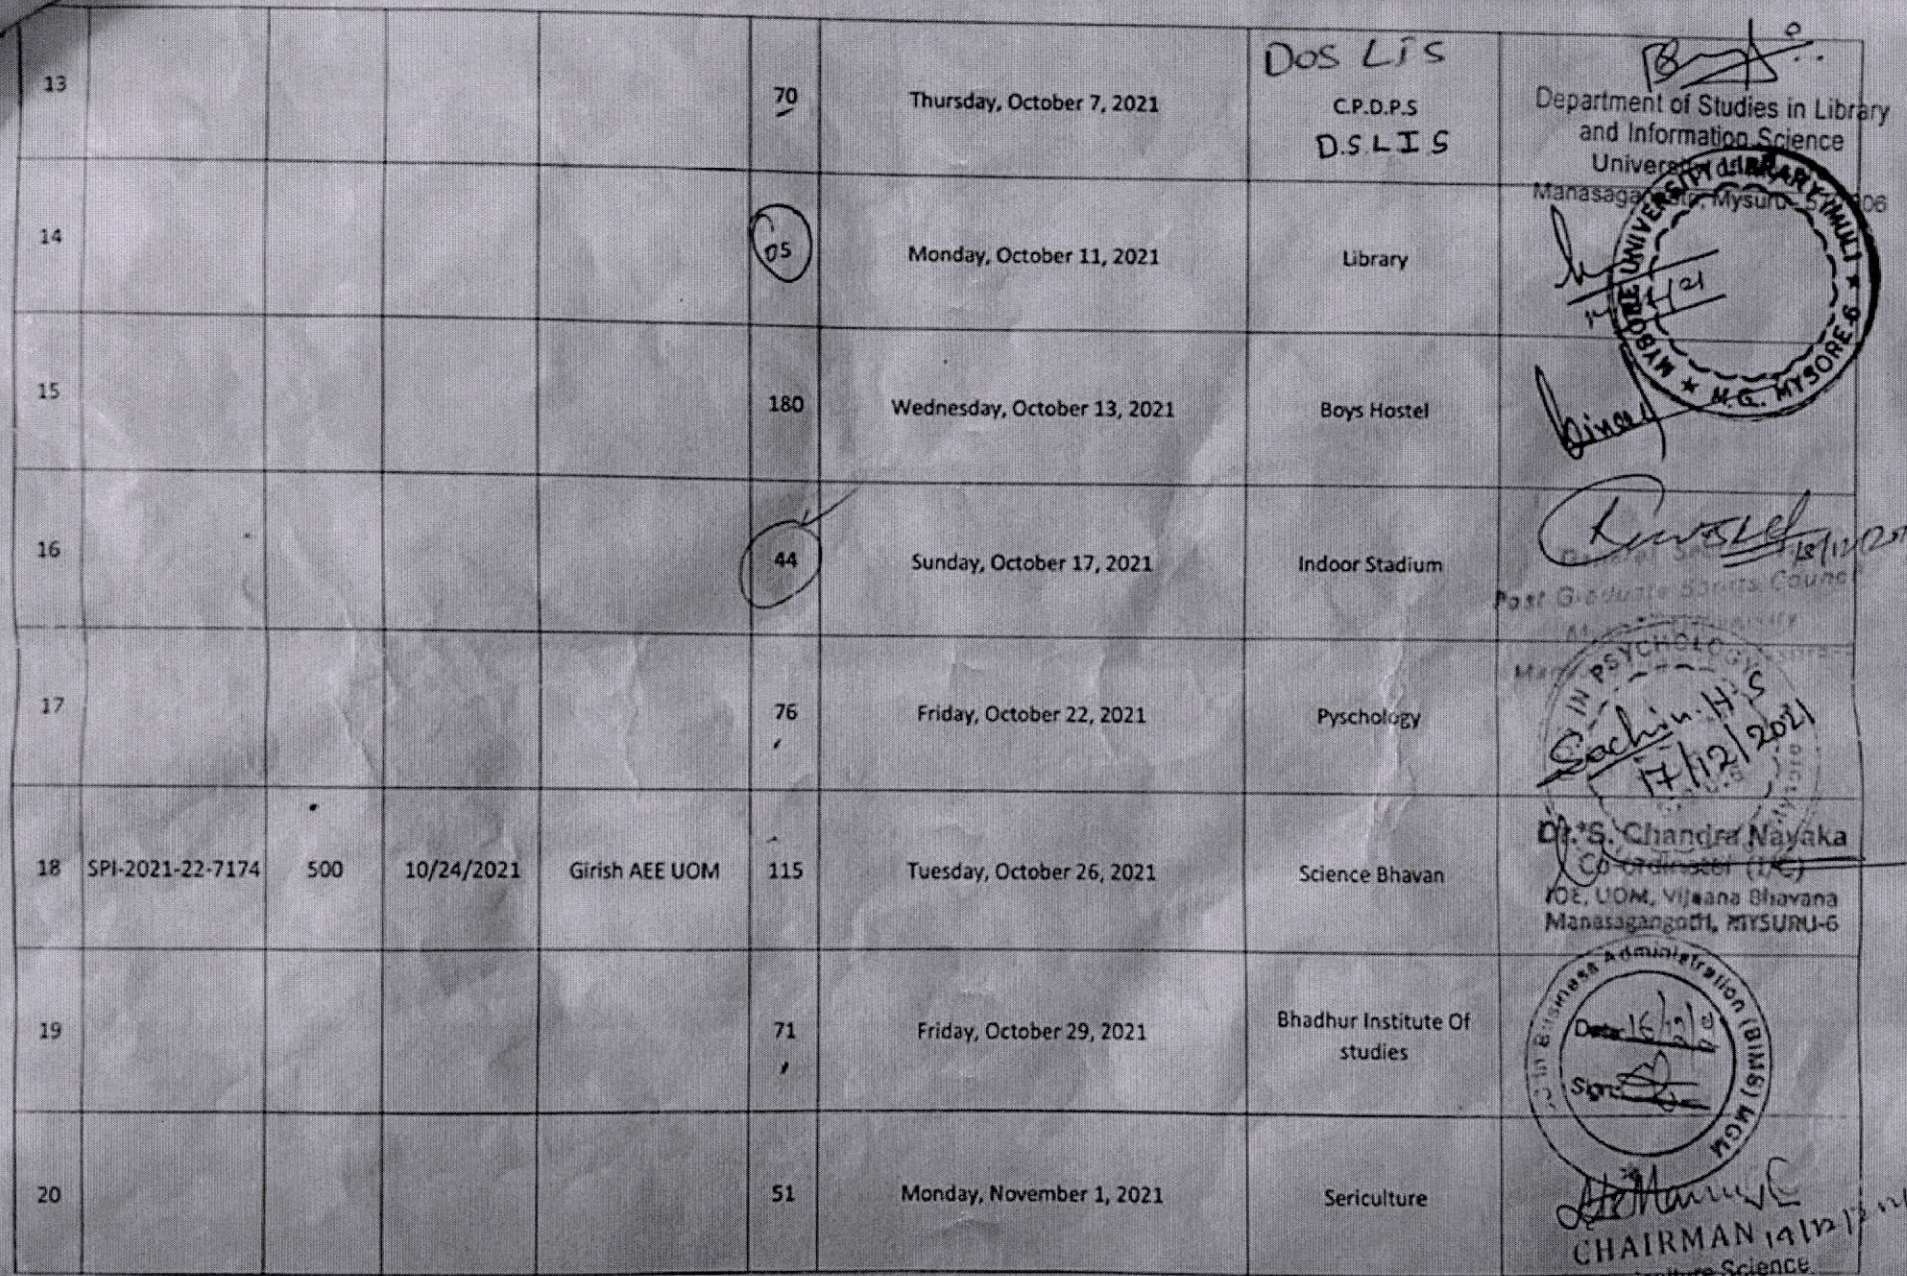 DOS LIS
13 70 Thursday, October 7, 2021 C.P.D.P.S
D.S.L.I.S
Department of Studies in Library
and Information Science
Manasaga Mysuru
14 05 Monday, October 11, 2021 Library
MYSORE UNIVERSITY LIBRARY (MUL) ★ M.G. MYSORE-6 ★
15 180 Wednesday, October 13, 2021 Boys Hostel
16 44 Sunday, October 17, 2021 Indoor Stadium
Post Graduate Sports Council
17 76 Friday, October 22, 2021 Pyschology
IN PSYCHOLOGY
Sachin. H. S
17/12/2021
18 SPI-2021-22-7174 500 10/24/2021 Girish AEE UOM 115 Tuesday, October 26, 2021 Science Bhavan
Dr. S. Chandra Nayaka
Co-ordinator (I/C)
IOE, UOM, Vijnana Bhavana
Manasagangotri, MYSURU-6
19 71 Friday, October 29, 2021 Bhadhur Institute Of
studies
in Business Administration (BIMS) MGM
Date
Sign:
20 51 Monday, November 1, 2021 Sericulture
CHAIRMAN
Science